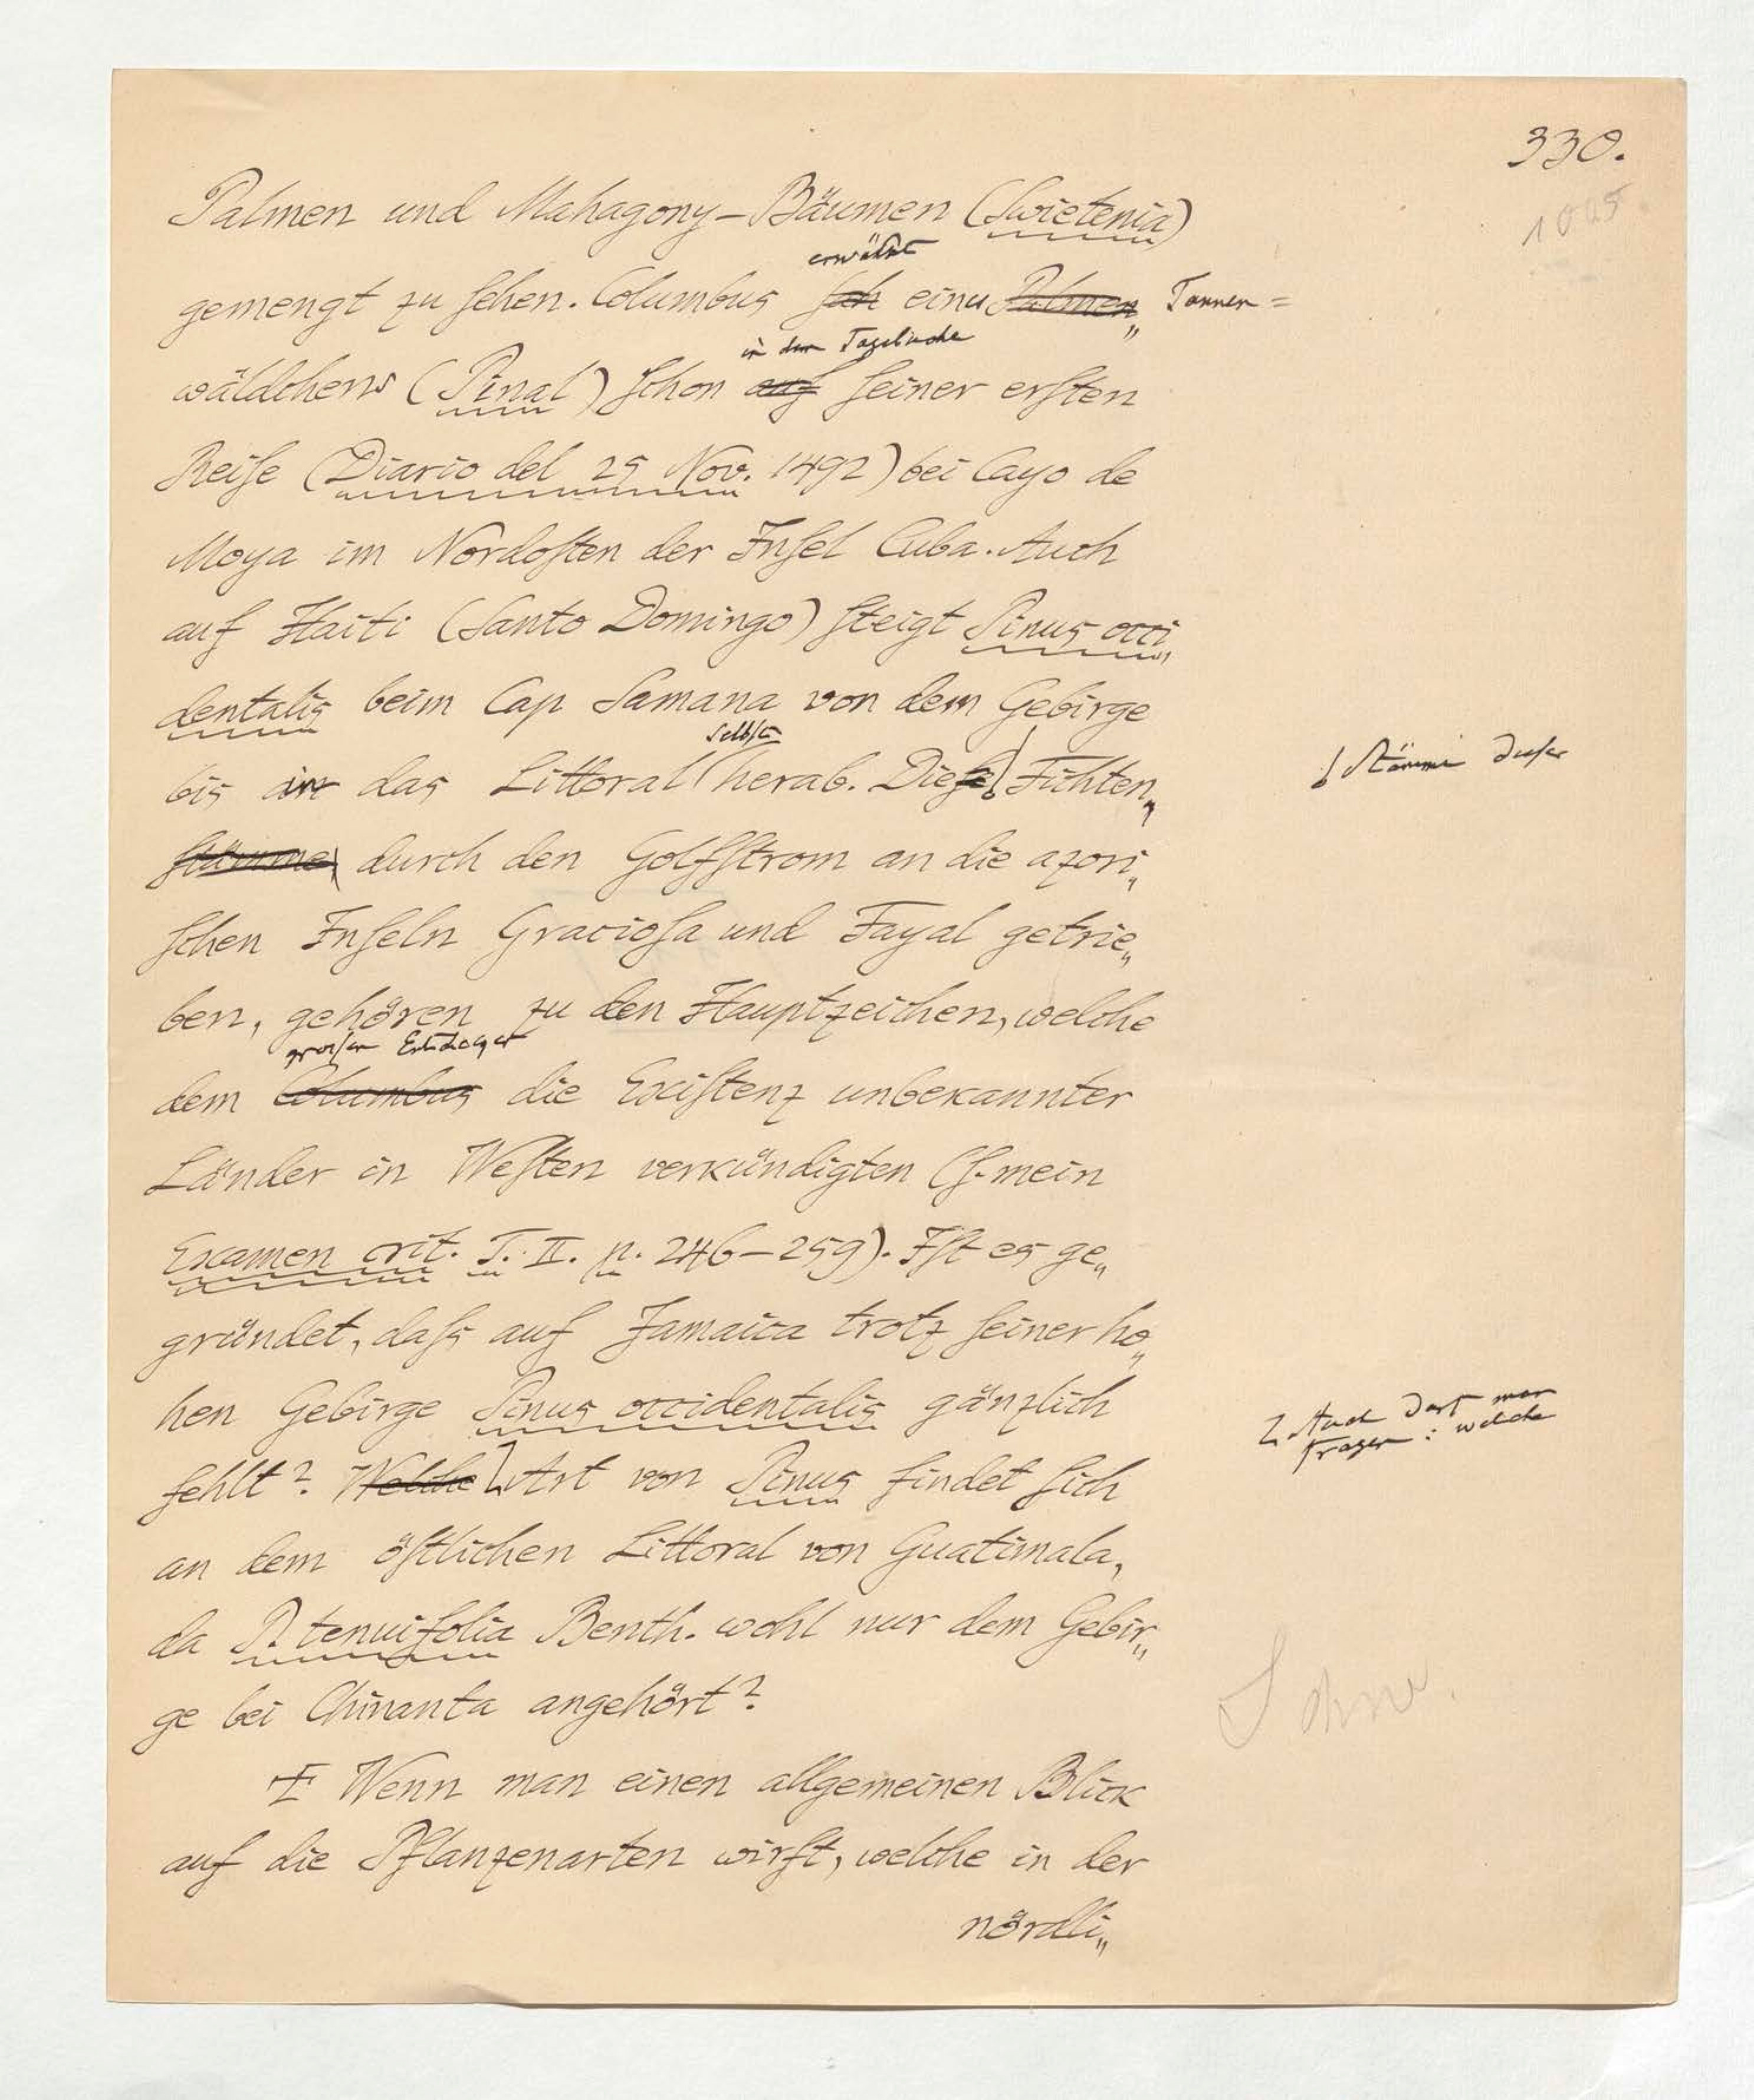 330.
1045
Palmen und Mahagony-Bäumen (Swietenia)
erwähnt
gemengt zu ſehen. Columbus ſah eines Palmen„ Tannen=
in dem Tagebuche
wäldchens (Pinal) ſchon auf ſeiner erſten
Reiſe (Diario del 25 Nov. 1492) bei Cayo de
Moya im Nordoſten der Inſel Cuba. Auch
auf Haiti (Santo Domingo) ſteigt Pinus occi„
dentalis beim Cap Samana von dem Gebirge
ſelbſt
bis in das Littoral herab. Dieſe Fichten„
Stämme dieſer
ſtämme durch den Golfſtrom an die azori„
ſchen Inſeln Gracioſa und Fayal getrie„
ben, gehören zu den Hauptzeichen, welche
groſsen Entdecker
dem Columbus die Exiſtenz unbekannter
Länder in Weſten verkündigten (ſ. mein
Examen crit. T. II. p. 246–259). Iſt es ge„
gründet, daſs auf Jamaica trotz ſeiner ho„
hen Gebirge Pinus occidentalis gänzlich
Auch darf man
fragen: welche
fehlt? Welche Art von Pinus findet ſich
an dem öſtlichen Littoral von Guatimala,
da P. tenuifolia Benth. wohl nur dem Gebir„
ge bei Chinanta angehört?
Wenn man einen allgemeinen Blick
auf die Pflanzenarten wirft, welche in der
nördli„